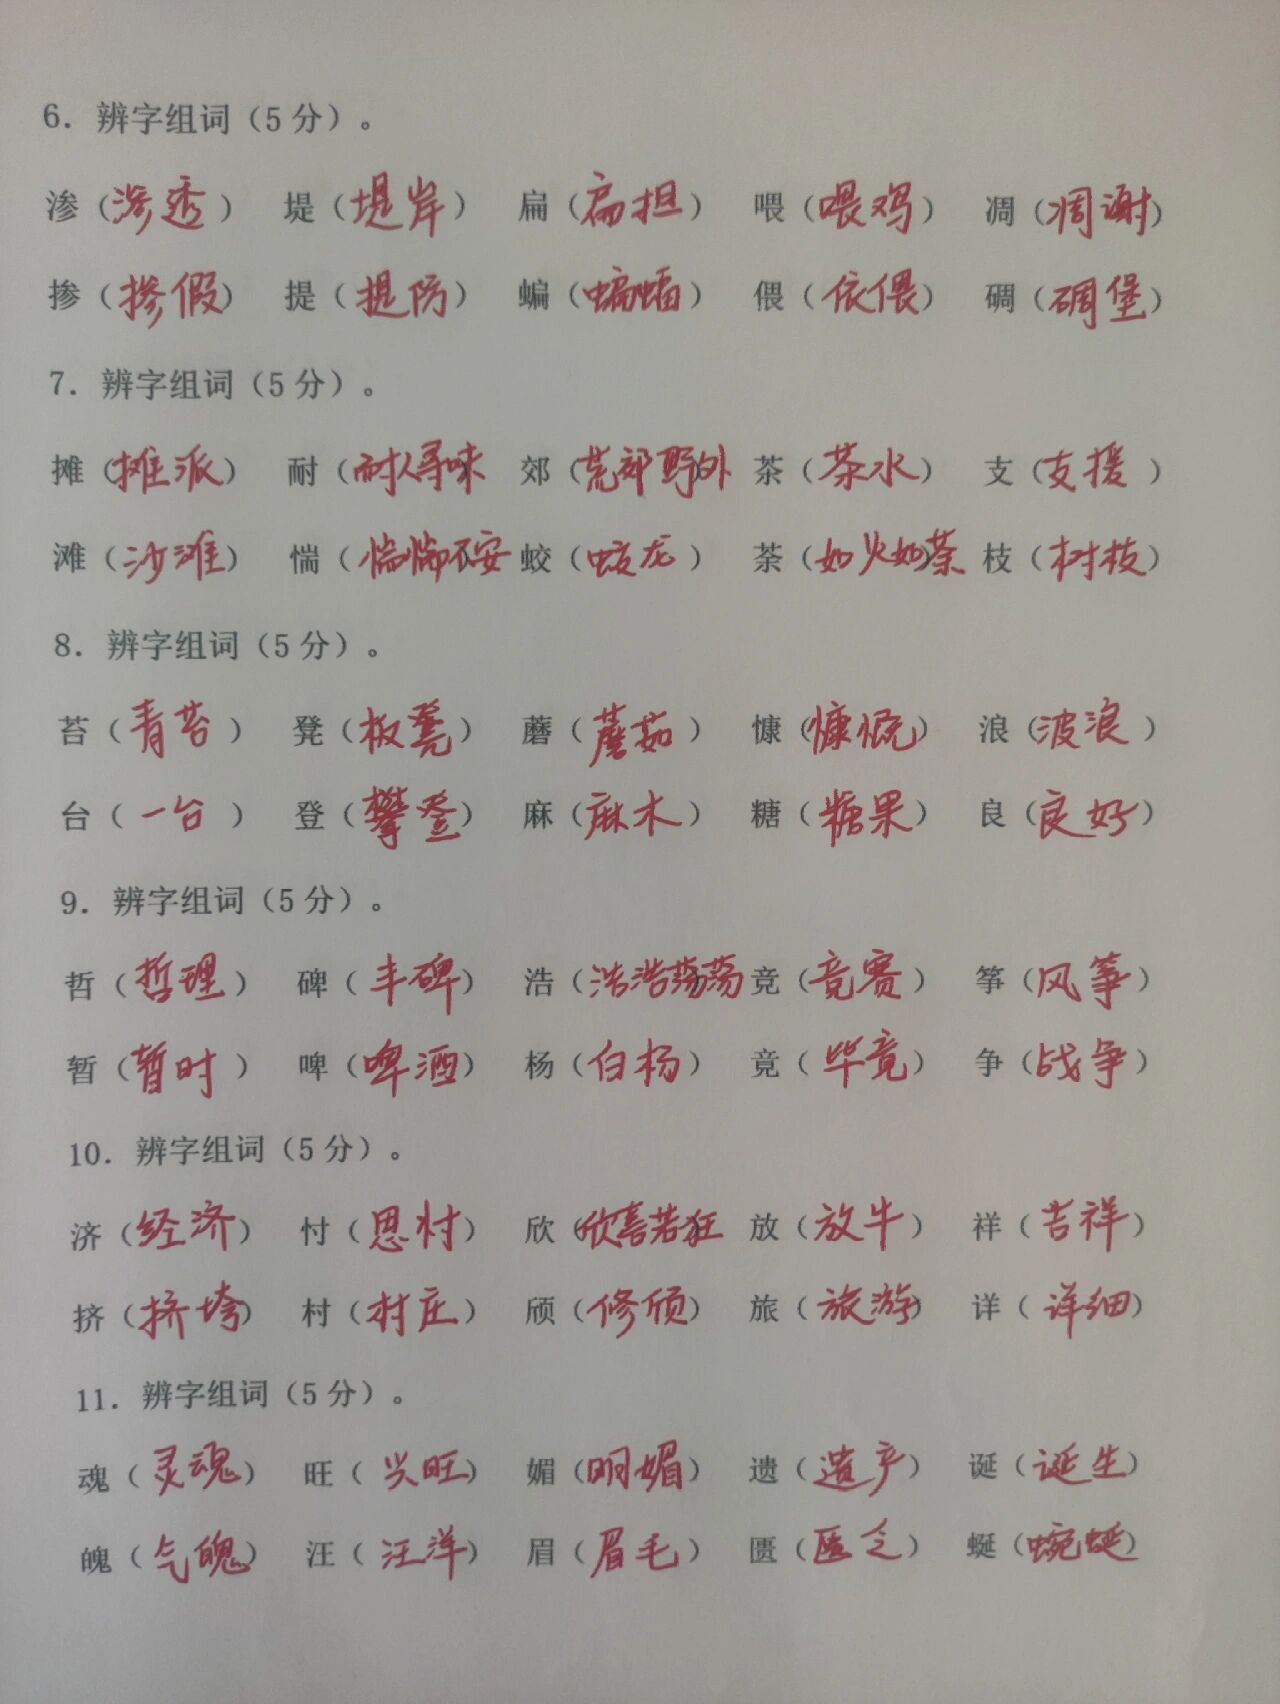 6. 辨字组词（5 分）。
渗（渗透） 堤（堤岸） 扁（扁担） 喂（喂鸡） 凋（凋谢）
掺（掺假） 提（提防） 蝙（蝙蝠） 偎（依偎） 碉（碉堡）
7. 辨字组词（5 分）。
摊（摊派） 耐（耐人寻味 郊（荒郊野外 茶（茶水） 支（支援）
滩（沙滩） 惴（惴惴不安 蛟（蛟龙） 荼（如火如荼 枝（树枝）
8. 辨字组词（5 分）。
苔（青苔） 凳（板凳） 蘑（蘑菇） 慷（慷慨） 浪（波浪）
台（一台） 登（攀登） 麻（麻木） 糖（糖果） 良（良好）
9. 辨字组词（5 分）。
哲（哲理） 碑（丰碑） 浩（浩浩荡荡 竞（竞赛） 筝（风筝）
暂（暂时） 啤（啤酒） 杨（白杨） 竟（毕竟） 争（战争）
10. 辨字组词（5 分）。
济（经济） 忖（思忖） 欣（欣喜若狂 放（放牛） 祥（吉祥）
挤（挤垮） 村（村庄） 颀（修颀） 旅（旅游） 详（详细）
11. 辨字组词（5 分）。
魂（灵魂） 旺（兴旺） 媚（明媚） 遗（遗产） 诞（诞生）
魄（气魄） 汪（汪洋） 眉（眉毛） 匮（匮乏） 蜒（蜿蜒）